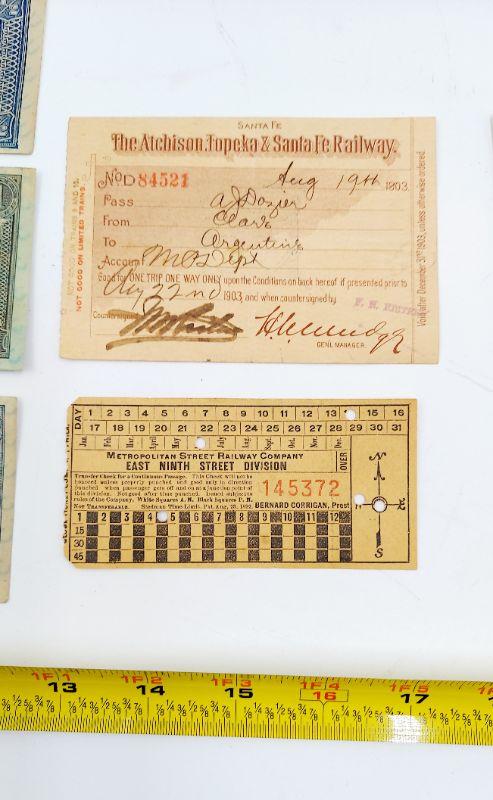 SANTA FE
The Atchison, Topeka & Santa Fe Railway.
No D 84521
Aug 19th 1903.
Pass A J Dozier
From Clark
To Argentine
Account M Dept
Good for ONE TRIP ONE WAY ONLY upon the Conditions on back hereof if presented prior to
Aug 22nd 1903, and when countersigned by
Countersigned
GEN'L MANAGER.
NOT GOOD ON LIMITED TRAINS.
Void after December 31st 1903, unless otherwise ordered
DAY 1 2 3 4 5 6 7 8 9 10 11 12 13 15 16
17 18 19 20 21 22 23 24 25 26 27 28 29 30 31
Jan. Feb. Mar. April May July Aug. Sep. Oct. Nov. Dec.
METROPOLITAN STREET RAILWAY COMPANY
EAST NINTH STREET DIVISION
OVER
Transfer Check for a Continuous Passage. This Check will not be
honored unless properly punched and good only in direction
punched when passenger gets off and on at a junction point of
this division. Not good after time punched. Issued subject to
rules of the Company. White Squares A. M. Black Squares P. M.
145372
NOT TRANSFERABLE. Stedman Time Limit. Pat. Aug. 23, 1892. BERNARD CORRIGAN, Prest
1 2 3 4 5 6 7 8 9 10 11 12
15
30
45
N
S
1F1 1F2 1F3 1F4 1F5
13 14 15 16 17